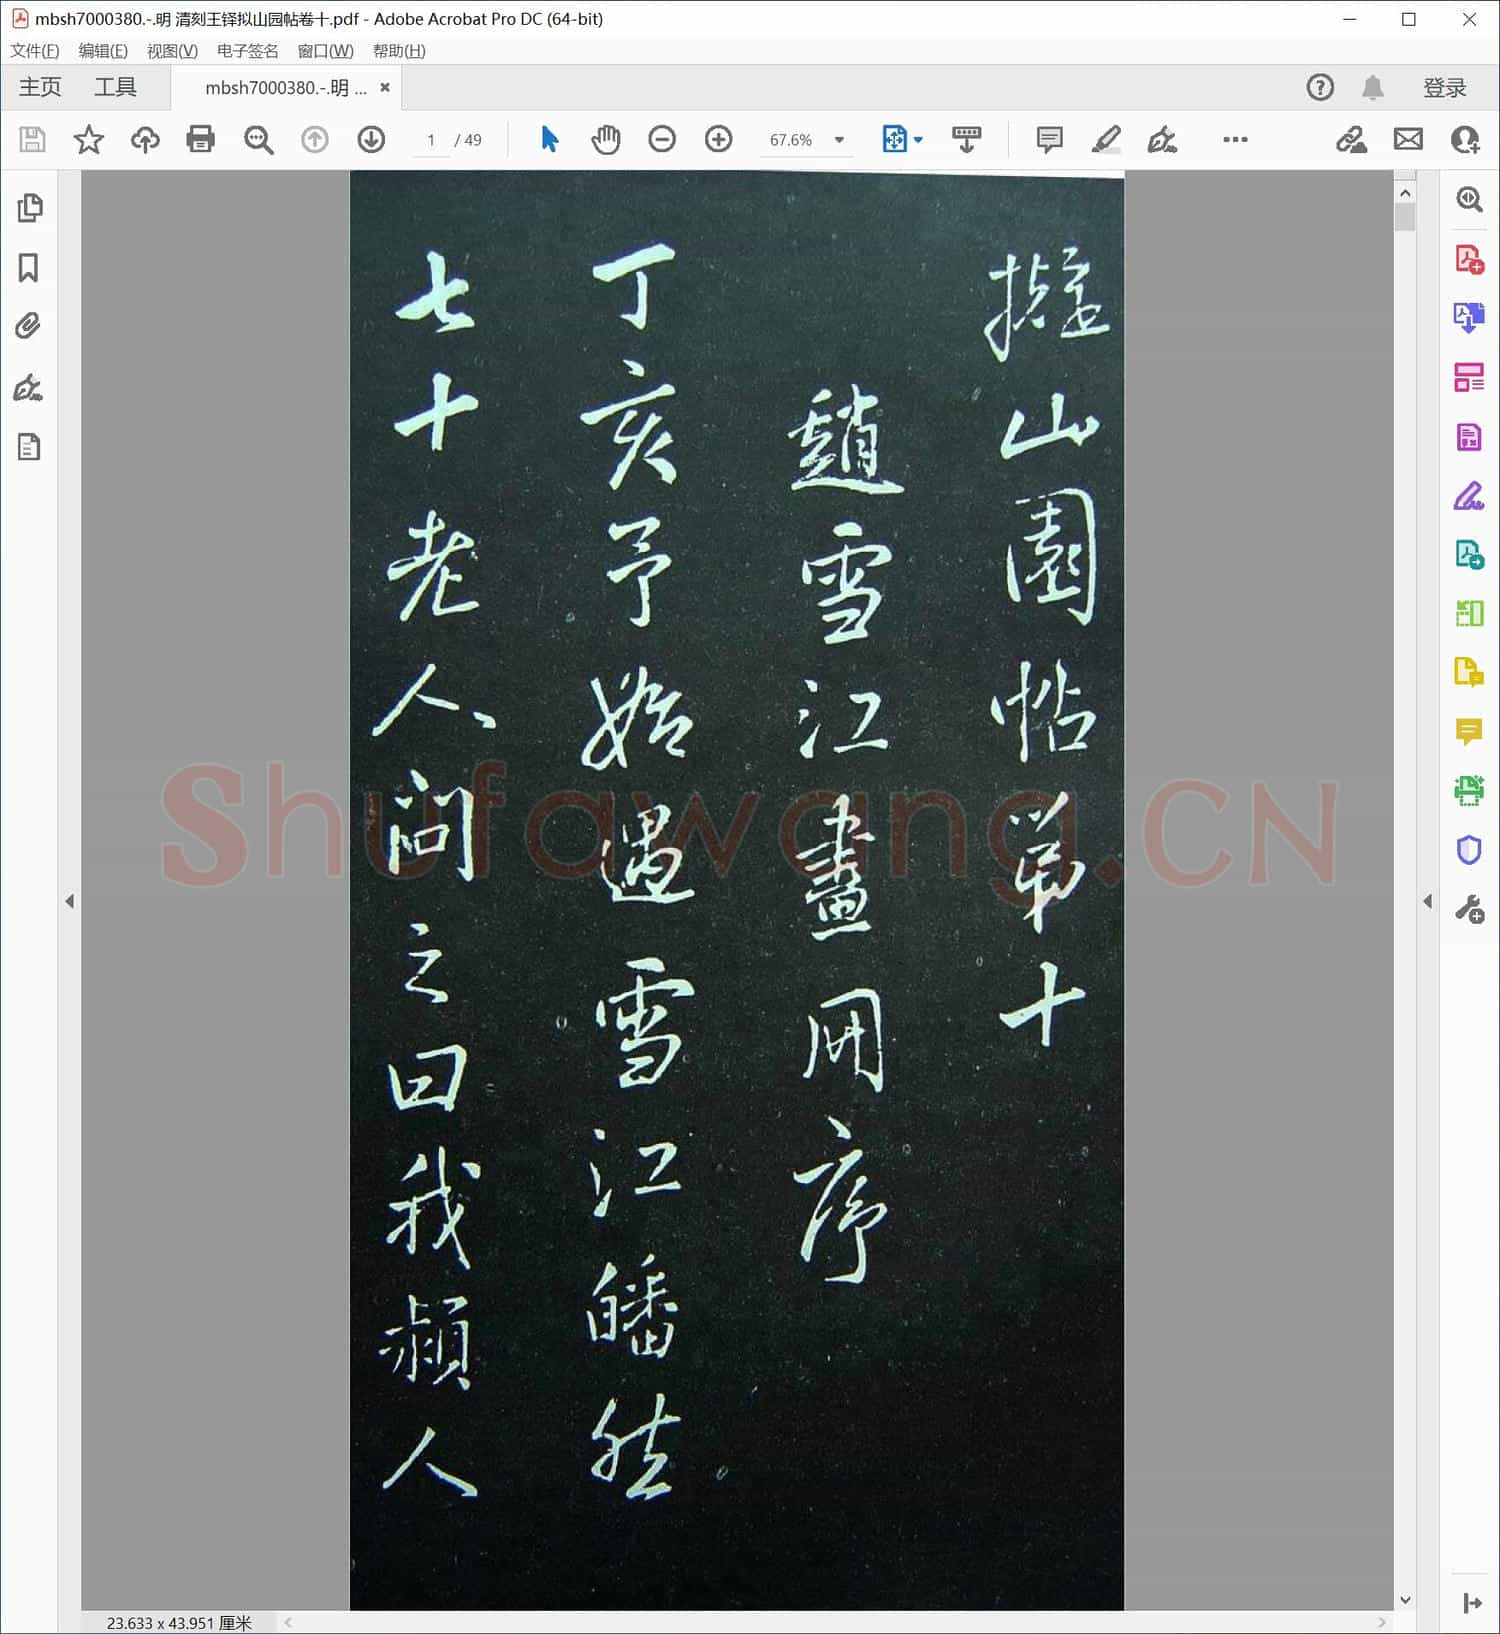 mbsh7000380.-.明 清刻王铎拟山园帖卷十.pdf - Adobe Acrobat Pro DC (64-bit)
文件(F) 编辑(E) 视图(V) 电子签名 窗口(W) 帮助(H)
主页 工具 mbsh7000380.-.明 ... 登录
1 / 49 67.6%
擬山園帖第十
趙雪江畫冊序
丁亥予始遇雪江皤然
七十老人問之曰我瀕人
Shufawang.CN
23.633 x 43.951 厘米